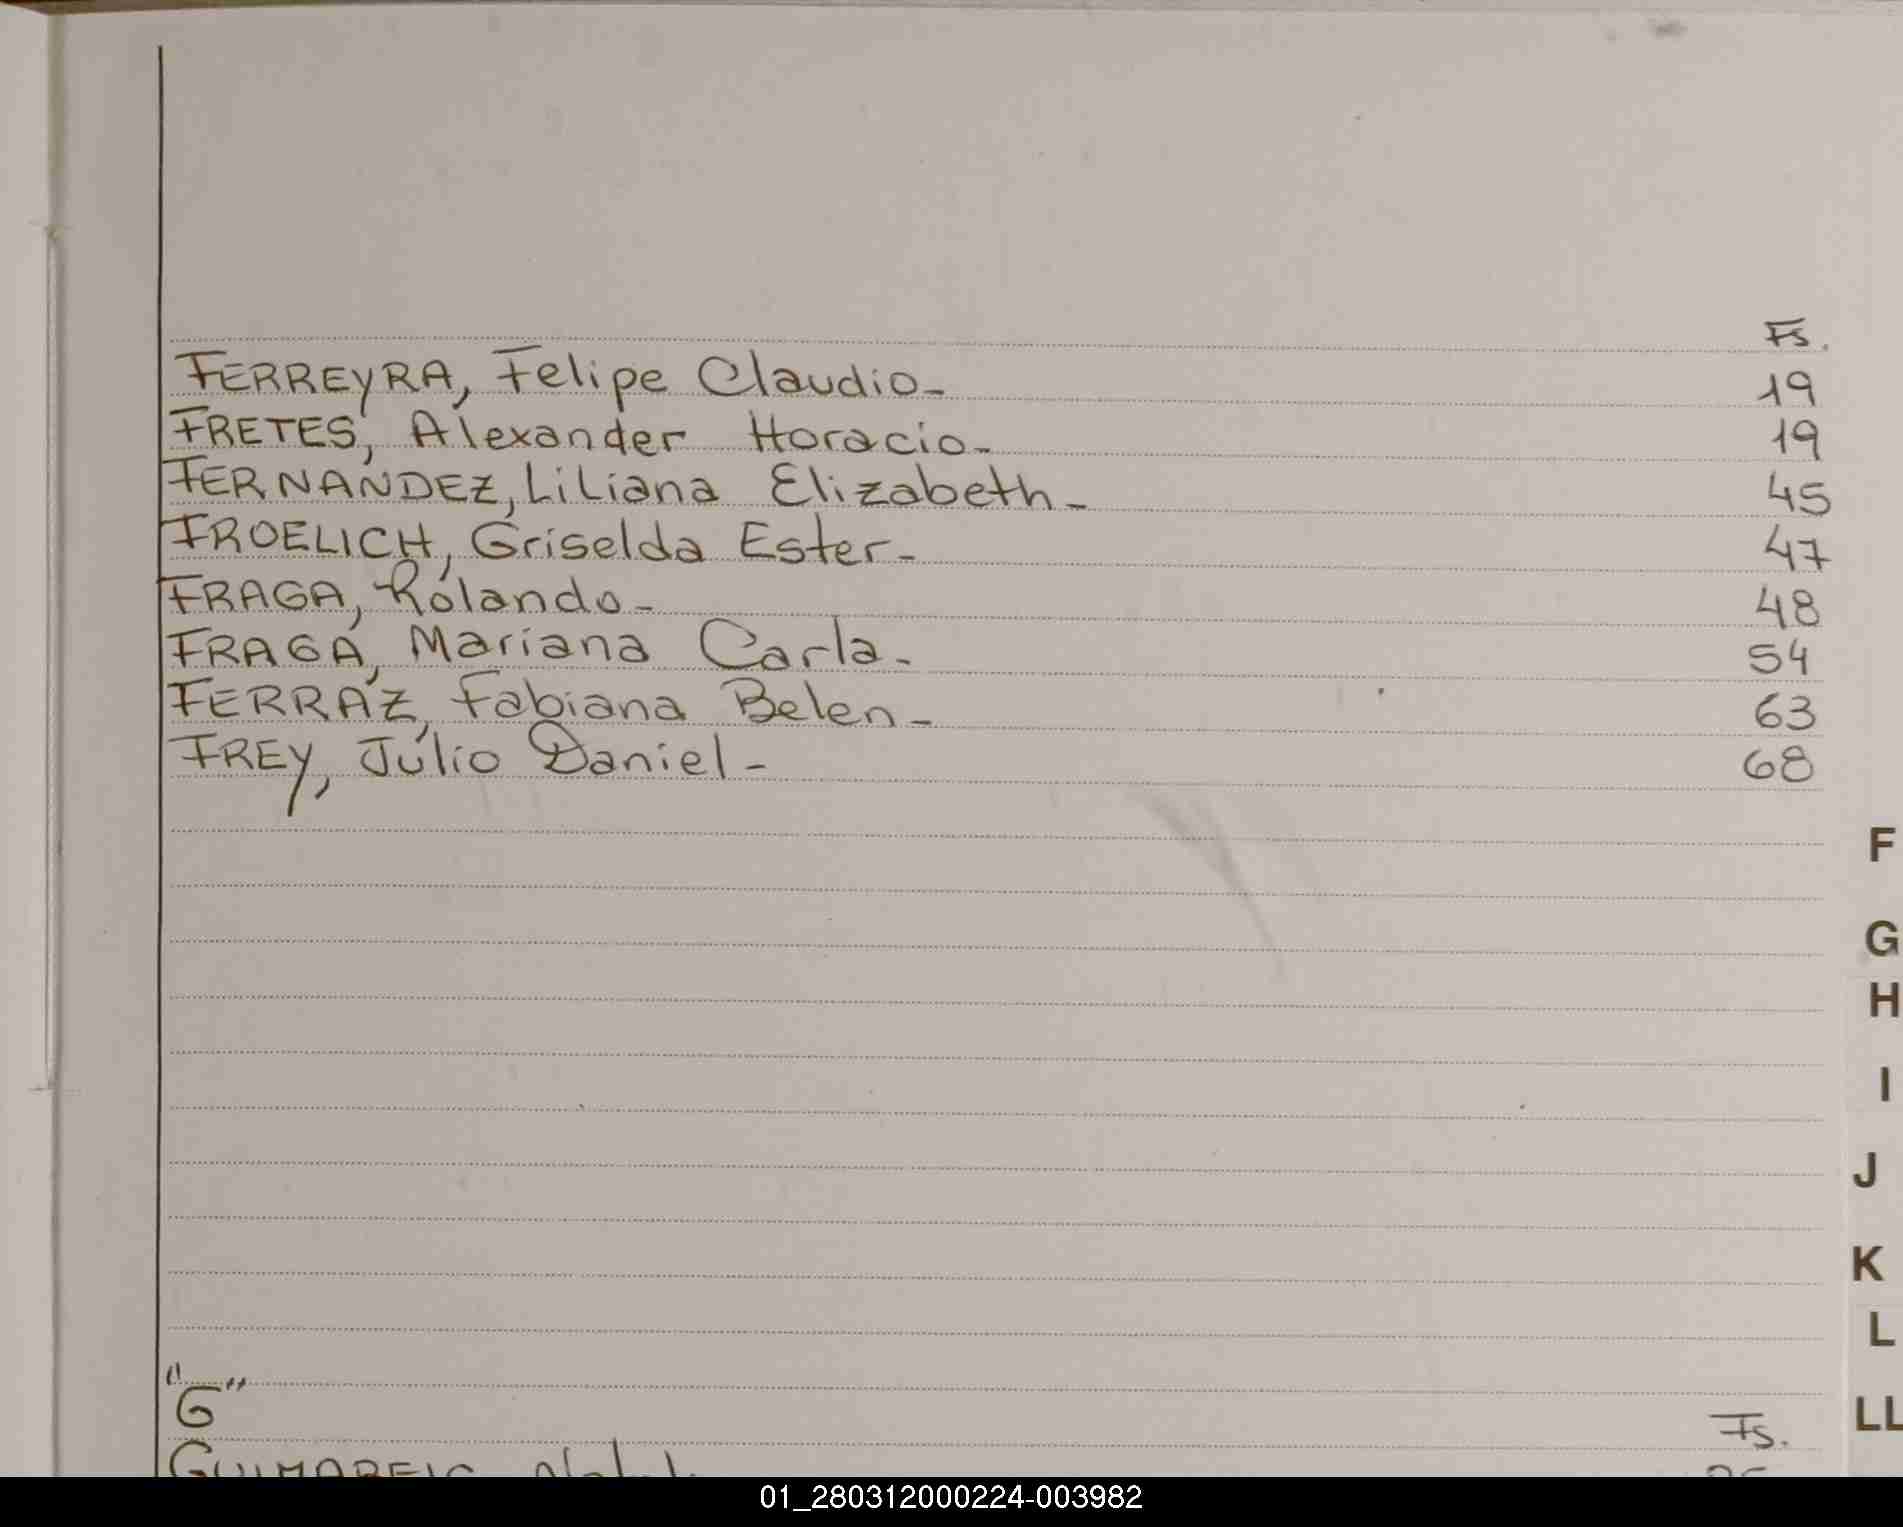 Fs.
FERREYRA, Felipe Claudio- 19
FRETES, Alexander Horacio- 19
FERNANDEZ, Liliana Elizabeth- 45
FROELICH, Griselda Ester- 47
FRAGA, Rolando- 48
FRAGA, Mariana Carla- 54
FERRAZ, Fabiana Belen- 63
FREY, Julio Daniel- 68
F
G
H
I
J
K
L
"G"
Fs. LL
01_280312000224-003982